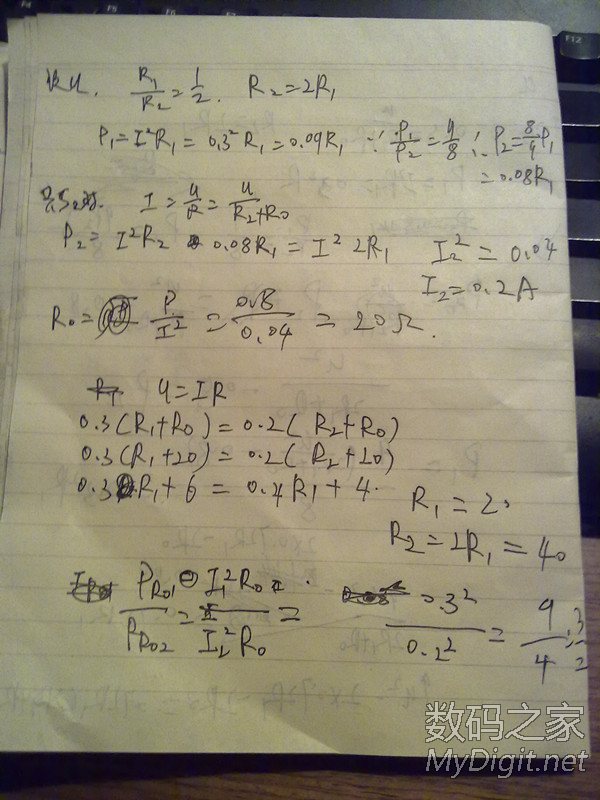 R₁/R₂ = 1/2. R₂=2R₁
P₁=I²R₁ = 0.3²R₁ = 0.09R₁ ∵ P₁/P₂ = 9/8 ∴ P₂ = 8/9 P₁
= 0.08R₁
I = U/R = U/(R₂+R₀)
P₂ = I²R₂ 0.08R₁ = I² 2R₁ I₂² = 0.04
I₂ = 0.2A
R₀ = P/I² = 0.8/0.04 = 20Ω.
U=IR
0.3(R₁+R₀) = 0.2(R₂+R₀)
0.3(R₁+20) = 0.2(R₂+20)
0.3R₁+6 = 0.4R₁+4.
R₁ = 20
R₂=2R₁ = 40
P_R01/P_R02 = I₁²R₀/I₂²R₀ = 0.3²/0.2² = 9/4
数码之家
MyDigit.net
F12